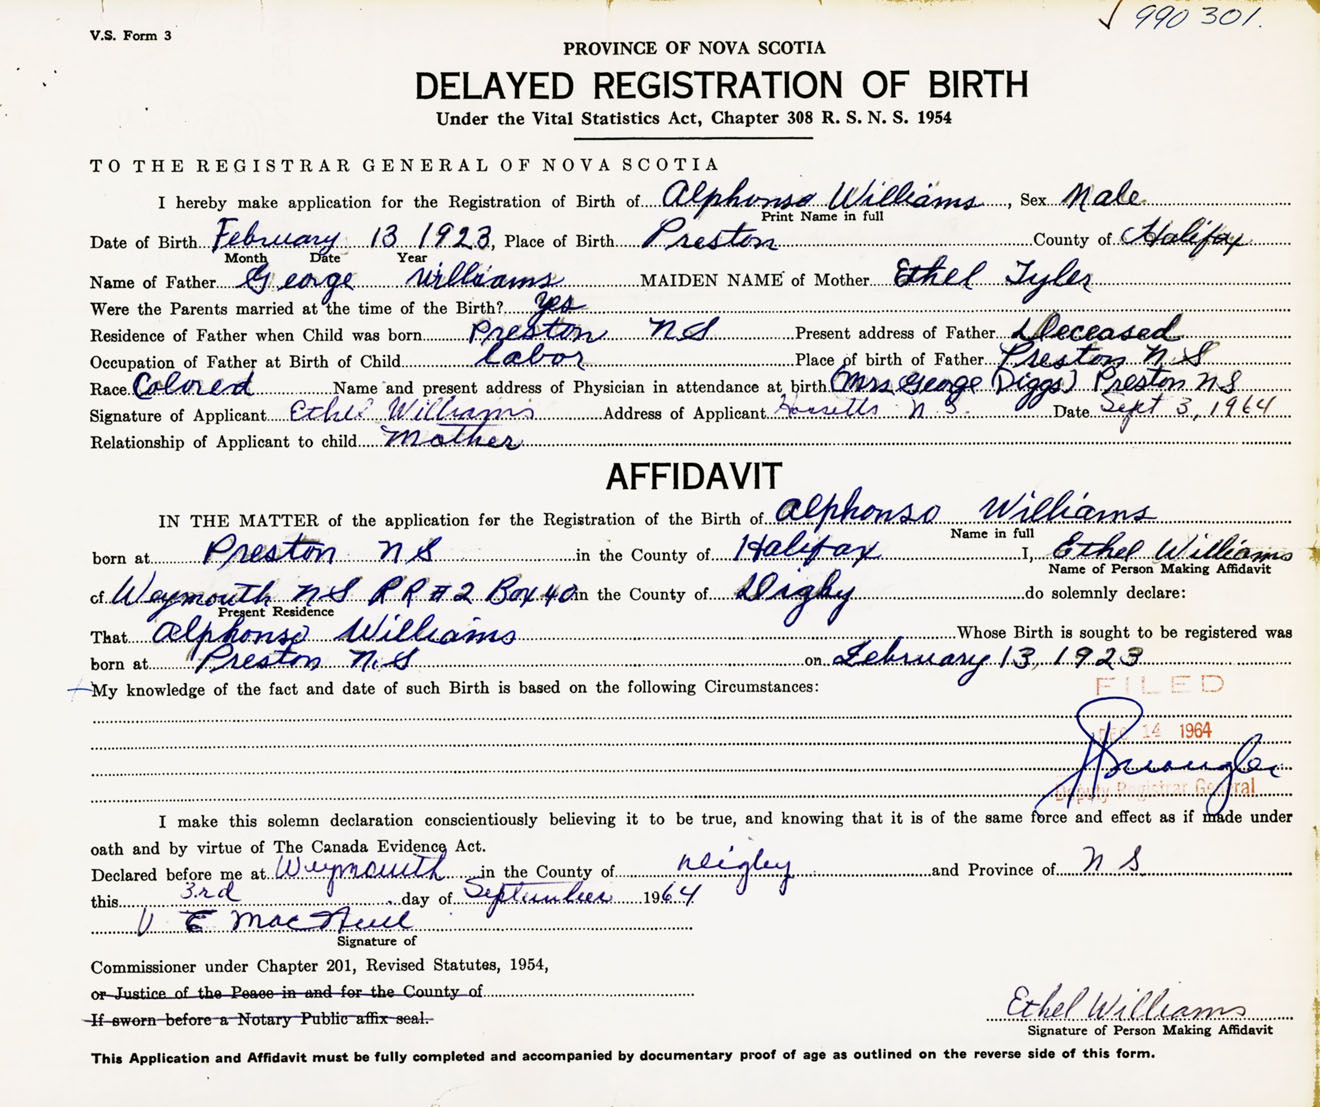 ✓ 990 301.
V.S. Form 3
PROVINCE OF NOVA SCOTIA
DELAYED REGISTRATION OF BIRTH
Under the Vital Statistics Act, Chapter 308 R. S. N. S. 1954
TO THE REGISTRAR GENERAL OF NOVA SCOTIA
I hereby make application for the Registration of Birth of Alphonso Williams, Sex Male
Print Name in full
Date of Birth February 13 1923, Place of Birth Preston County of Halifax
Month Date Year
Name of Father George Williams MAIDEN NAME of Mother Ethel Tyler
Were the Parents married at the time of the Birth? yes
Residence of Father when Child was born Preston NS Present address of Father Deceased
Occupation of Father at Birth of Child labor Place of birth of Father Preston N.S
Race Colored Name and present address of Physician in attendance at birth (Mrs. George Diggs) Preston NS
Signature of Applicant Ethel Williams Address of Applicant N.S. Date Sept 3, 1964
Relationship of Applicant to child Mother
AFFIDAVIT
IN THE MATTER of the application for the Registration of the Birth of Alphonso Williams
Name in full
born at Preston NS in the County of Halifax I, Ethel Williams
Name of Person Making Affidavit
of Weymouth NS RR #2 Box 40 in the County of Digby do solemnly declare:
Present Residence
That Alphonso Williams Whose Birth is sought to be registered was
born at Preston N.S on February 13, 1923
My knowledge of the fact and date of such Birth is based on the following Circumstances:
FILED
DEC 14 1964
Deputy Registrar General
I make this solemn declaration conscientiously believing it to be true, and knowing that it is of the same force and effect as if made under
oath and by virtue of The Canada Evidence Act.
Declared before me at Weymouth in the County of Digby and Province of N S
this 3rd day of September 1964
V E MacNeill
Signature of
Commissioner under Chapter 201, Revised Statutes, 1954,
or Justice of the Peace in and for the County of
If sworn before a Notary Public affix seal.
Ethel Williams
Signature of Person Making Affidavit
This Application and Affidavit must be fully completed and accompanied by documentary proof of age as outlined on the reverse side of this form.